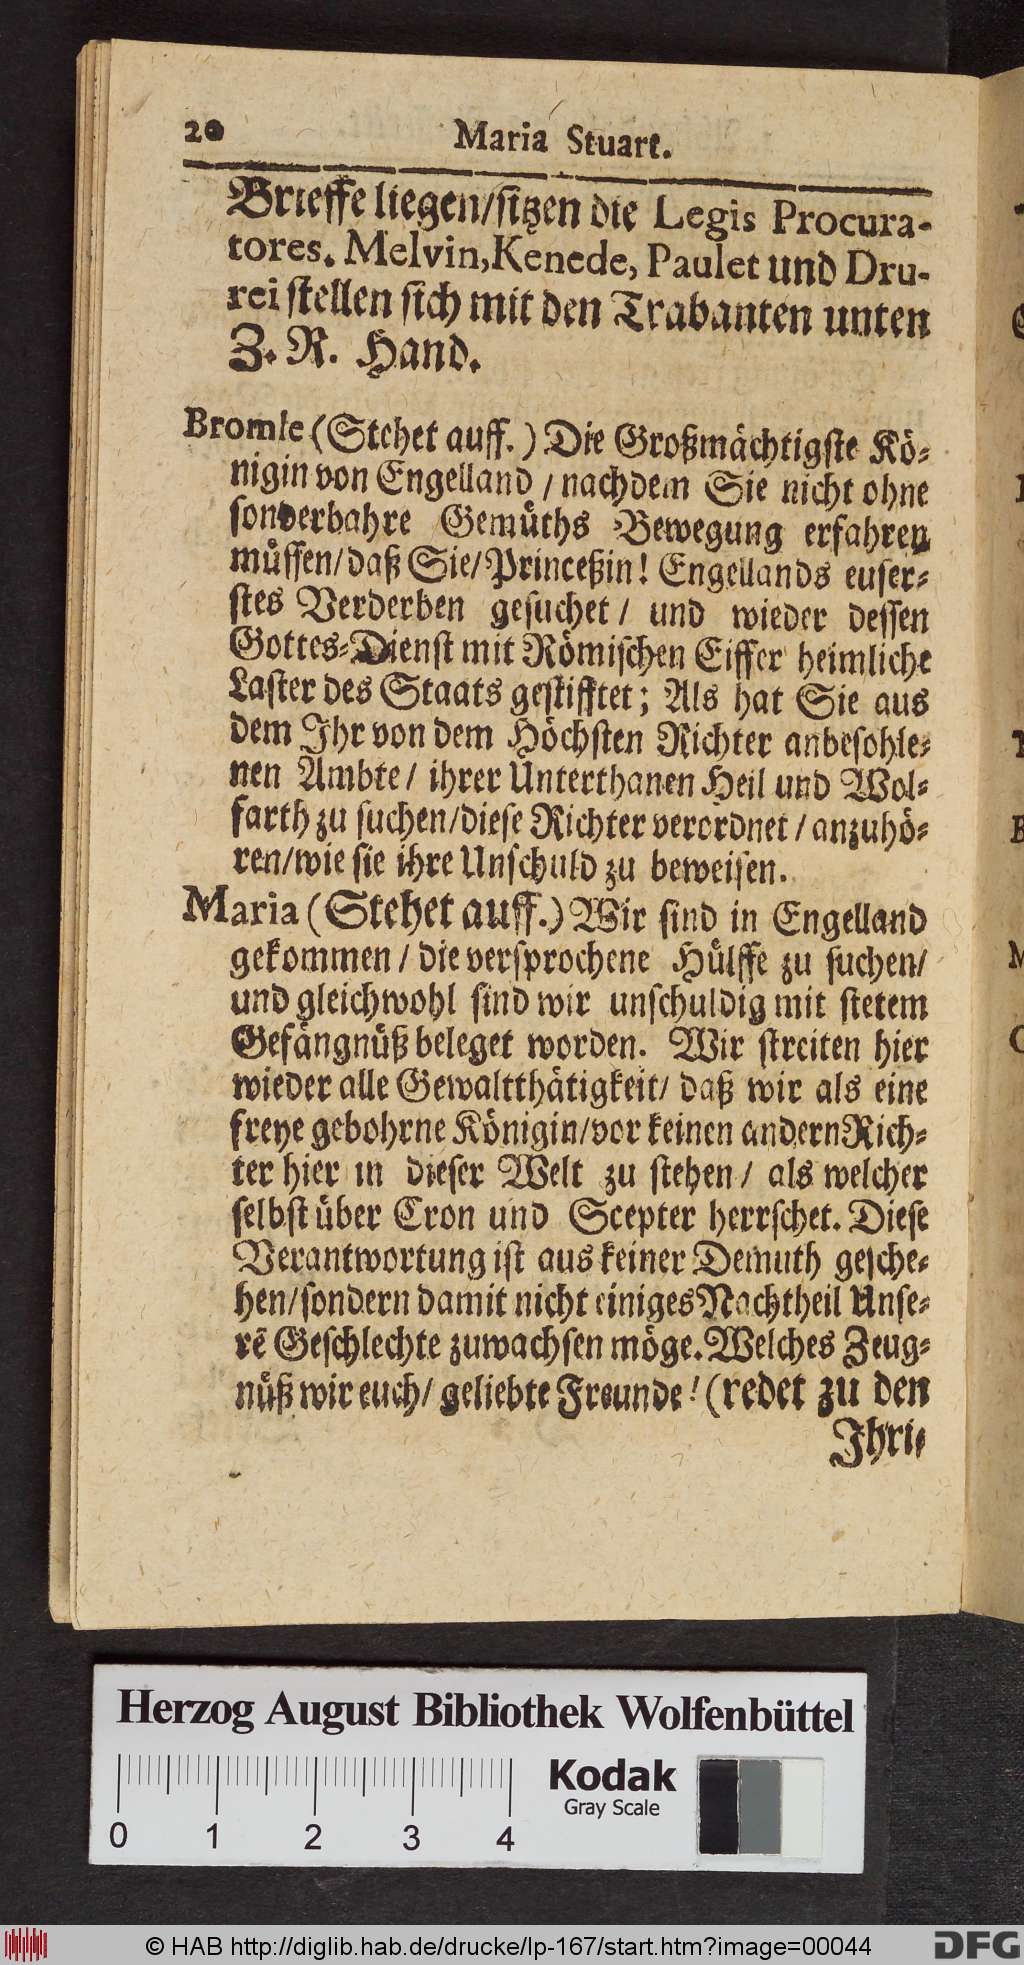 20 Maria Stuart.
Brieffe liegen/sitzen die Legis Procura-
tores. Melvin, Kenede, Paulet und Dru-
rei stellen sich mit den Trabanten unten
Z. R. Hand.
Bromle (Stehet auff.) Die Großmächtigste Kö-
nigin von Engelland / nachdem Sie nicht ohne
sonderbahre Gemüths Bewegung erfahren
müssen/ daß Sie/ Princeßin! Engellands euser-
stes Verderben gesuchet / und wieder dessen
Gottes-Dienst mit Römischen Eiffer heimliche
Laster des Staats gestifftet; Als hat Sie aus
dem Ihr von dem Höchsten Richter anbefohle-
nen Ambte/ ihrer Unterthanen Heil und Wol-
farth zu suchen/diese Richter verordnet / anzuhö-
ren/wie sie ihre Unschuld zu beweisen.
Maria (Stehet auff.) Wir sind in Engelland
gekommen / die versprochene Hülffe zu suchen/
und gleichwohl sind wir unschuldig mit stetem
Gefängnüß beleget worden. Wir streiten hier
wieder alle Gewaltthätigkeit/ daß wir als eine
freye gebohrne Königin/vor keinen andern Rich-
ter hier in dieser Welt zu stehen / als welcher
selbst über Cron und Scepter herrschet. Diese
Verantwortung ist aus keiner Demuth gesche-
hen/sondern damit nicht einiges Nachtheil Unse-
rē Geschlechte zuwachsen möge. Welches Zeug-
nüß wir euch/ geliebte Freunde! (redet zu den
Ihri-
Herzog August Bibliothek Wolfenbüttel
Kodak
Gray Scale
0 1 2 3 4
© HAB http://diglib.hab.de/drucke/lp-167/start.htm?image=00044
DFG